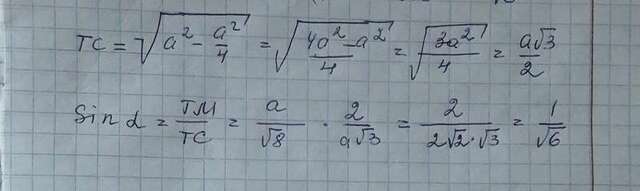 TC = √(a² - a²/4) = √((4a² - a²)/4) = √(3a²/4) = a√3/2
Sin α = TM/TC = a/√8 · 2/a√3 = 2/(2√2·√3) = 1/√6